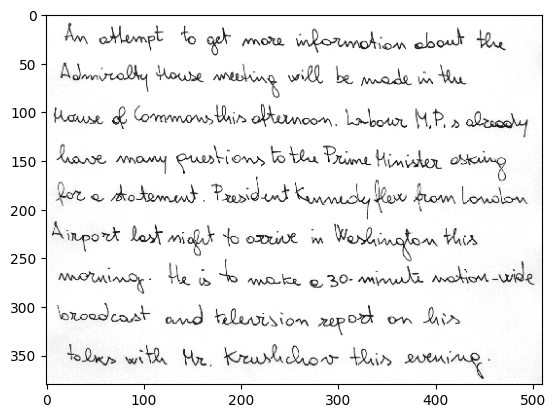 An attempt to get more information about the
Admiralty House meeting will be made in the
House of Commons this afternoon. Labour M.P.s already
have many questions to the Prime Minister asking
for a statement. President Kennedy flew from London
Airport last night to arrive in Washington this
morning. He is to make a 30-minute nation-wide
broadcast and television report on his
talks with Mr. Krushchov this evening.
0
50
100
150
200
250
300
350
0 100 200 300 400 500